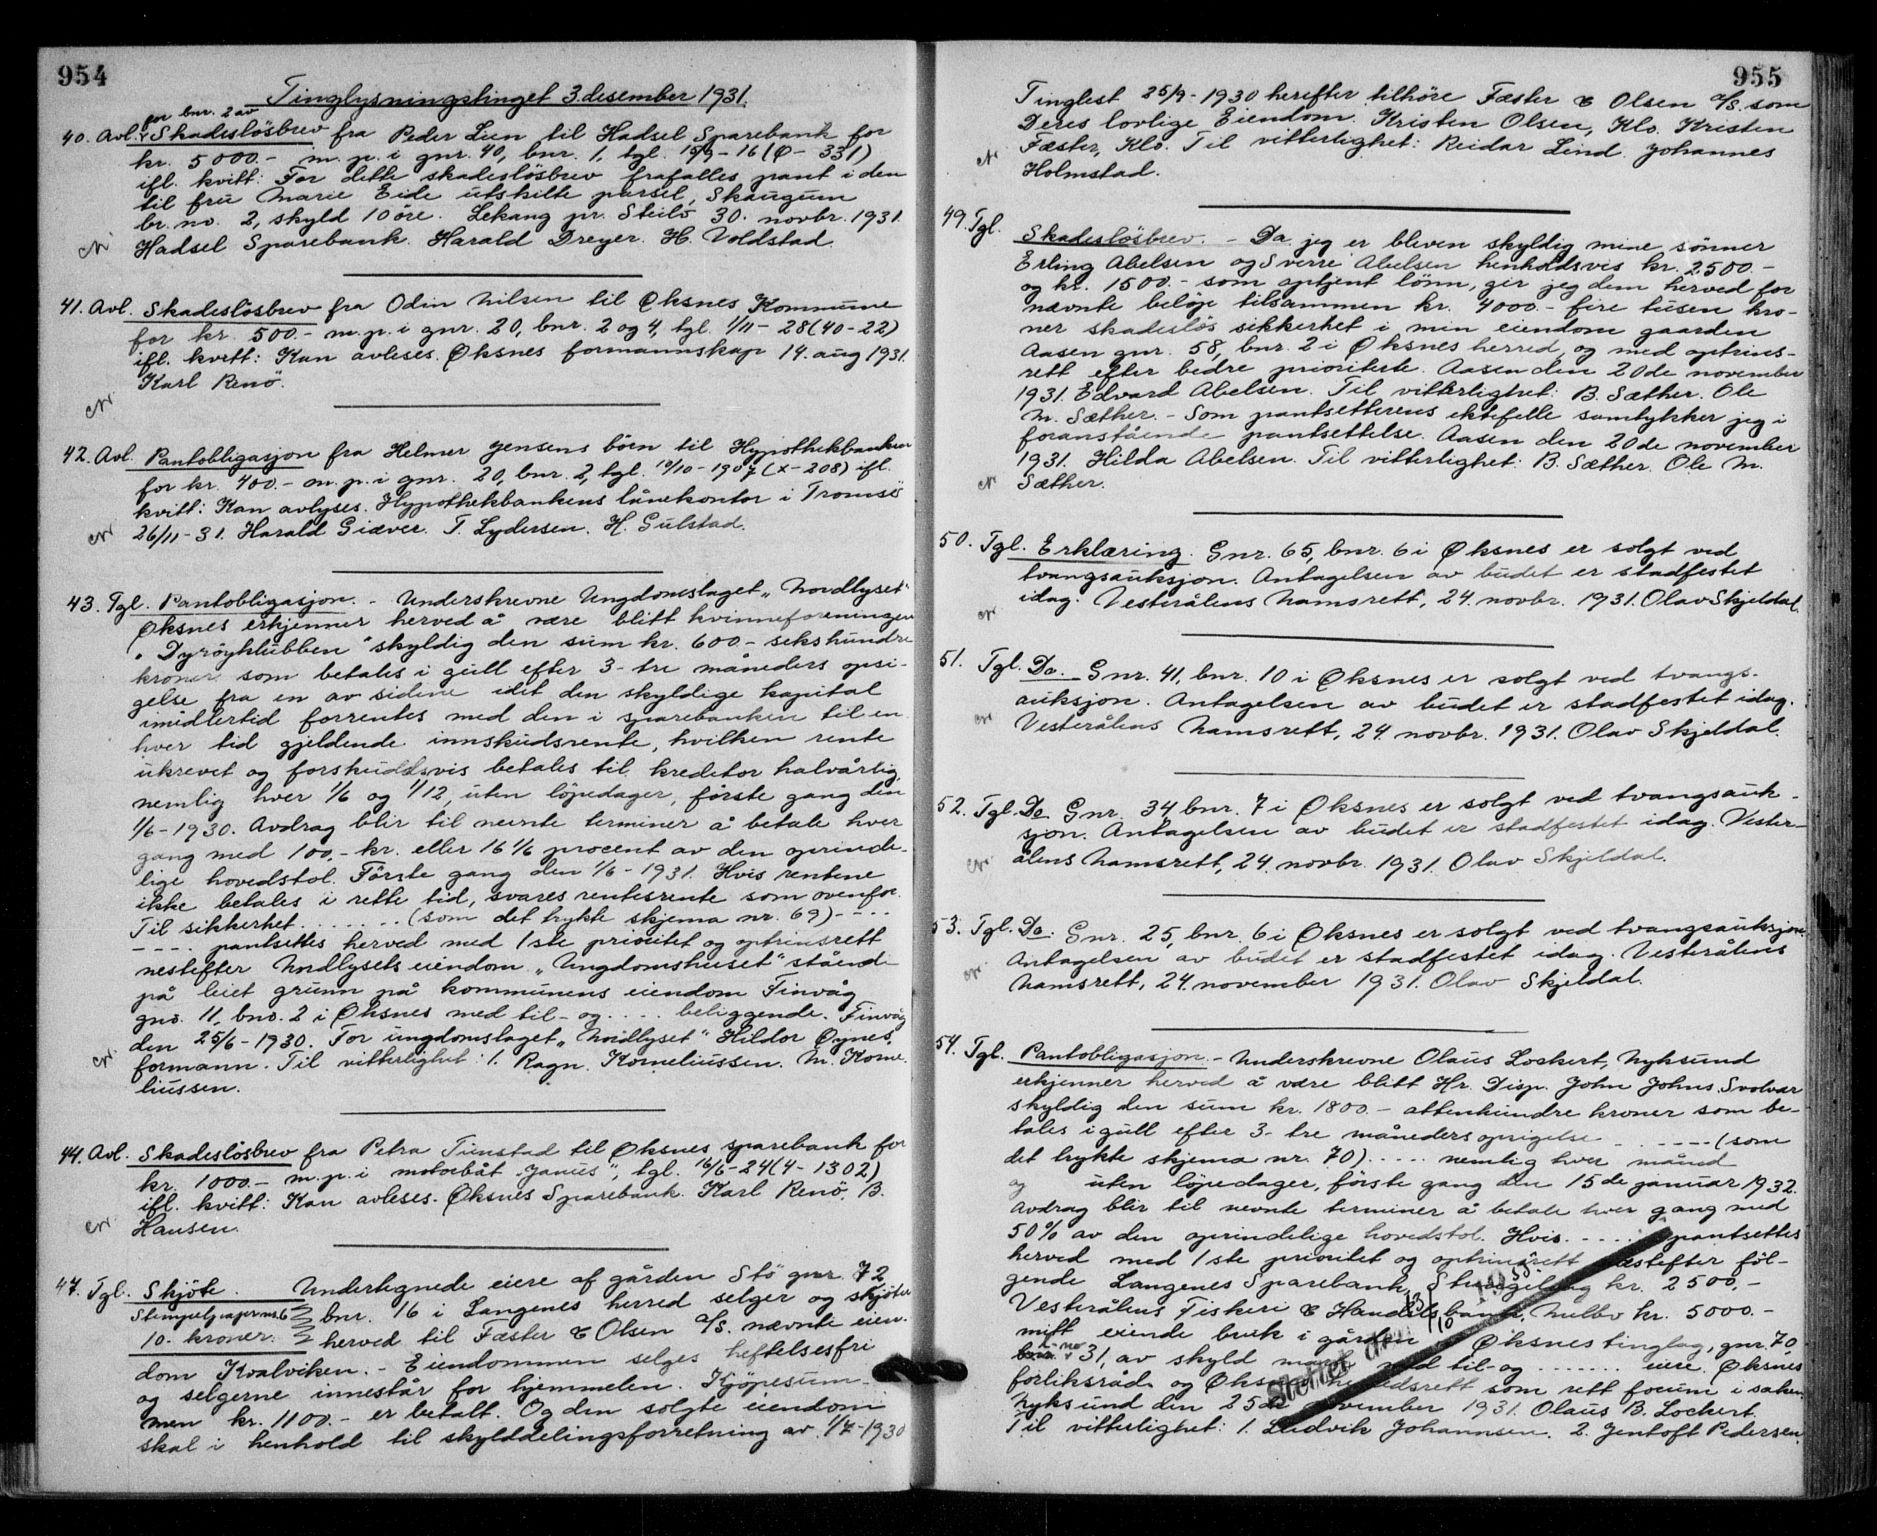 954
Tinglysningstinget 3. desember 1931.
for bnr. 2 av
40. Avl. Skadeslösbrev fra Peder Lien til Hadsel Sparebank for
kr. 5000.- m. p. i gnr. 40, bnr. 1, tgl. 15/9-16 (Ø-331)
ifl. kvitt: For dette skadeslösbrev frafalles pant i den
til fru Marie Eide utskilte parsel, Skaugum
br. no. 2, skyld 10 öre. Lekang pr. Steilo 30. novbr. 1931.
Hadsel Sparebank. Harald Dreyer. H. Voldstad.
41. Avl. Skadeslösbrev fra Odin Nilsen til Øksnes Kommune
for kr. 500.- m. p. i gnr. 20, bnr. 2 og 4, tgl. 1/11-28 (40-22)
ifl. kvitt: Kan avleses. Øksnes formannskap 14. aug 1931.
Karl Renö.
42. Avl. Pantobligasjon fra Helmer Jensens börn til Hypothekbanken
for kr. 400.- m. p. i gnr. 20, bnr. 2, tgl. 10/10-1907 (X-208) ifl.
kvitt: Kan avlyses. Hypothekbankens lånekontor i Tromsö
26/11-31. Harald Giæver. T. Lydersen. H. Gulstad.
43. Tgl. Pantobligasjon. - Underskrevne Ungdomslaget „Nordlyset"
Øksnes erkjenner herved å være blitt kvinneforeningen
„Dyröyklubben" skyldig den sum kr. 600.- sekshundre
kroner som betales i gull efter 3- tre måneders opsi-
gelse fra en av sidene idet den skyldige kapital
imidlertid forrentes med den i sparebanken til en
hver tid gjeldende innskudsrente, hvilken rente
ukrevet og forskuddsvis betales til kreditor halvårlig,
nemlig hver 1/6 og 1/12, uten löpedager, förste gang den
1/6-1930. Avdrag blir til nevnte terminer å betale hver
gang med 100,- kr. eller 16 1/6 procent av den oprinde-
lige hovedstol. Förste gang den 1/6-1931. Hvis rentene
ikke betales i rette tid, svares rentesrente som ovenfor.
Til sikkerhet ....... (som det trykte skjema nr. 69) - - - -
- - - - pantsettes herved med 1ste prioritet og optrinsrett
nestefter Nordlysets eiendom „Ungdomshuset" stående
på leiet grunn på kommunens eiendom Finvåg
gno. 11, bno. 2 i Øksnes med til- og .... beliggende. Finvåg
den 25/6-1930. For ungdomslaget „Nordlyset" Hildor Øynes,
formann. Til vitterlighet: 1. Ragn. Korneliussen. M. Korne-
liussen.
44. Avl. Skadeslösbrev fra Petra Tunstad til Øksnes sparebank for
kr. 1000.- m. p. i motorbåt „Janus", tgl. 16/6-24 (4-1302)
ifl. kvitt: Kan avleses. Øksnes Sparebank. Karl Renö. B.
Hansen.
47. Tgl. Skjöte. Undertegnede eiere af gården Stö gnr. 72
Stempelpapir nr. 6
10.- kroner.
bnr. 16 i Langenes herred selger og skjöter
herved til Fæster & Olsen A/S. nævnte eien-
dom Kvalviken. - Eiendommen selges heftelsesfri
og selgerne innestår for hjemmelen. Kjöpesum-
men kr. 1100.- er betalt. Og den solgte eiendom
skal i henhold til skylddelingsforretning av 1/7-1930
955
Tinglest 25/9-1930 herefter tilhöre Fæster & Olsen A/S. som
Deres lovlige Eiendom. Kristen Olsen, Klo. Kristen
Fæster, Klo. Til vitterlighet: Reidar Lind. Johannes
Holmstad.
49. Tgl. Skadeslösbrev. - Da jeg er bleven skyldig mine sönner
Erling Abelsen og Sverre Abelsen henholdsvis kr. 2500.-
og kr. 1500.- som optjent lönn, gir jeg dem herved for
nævnte belöp tilsammen kr. 4000.- fire tusen kro-
ner skadeslös sikkerhet i min eiendom gaarden
Aasen gnr. 58, bnr. 2 i Øksnes herred, og med optrins-
rett efter bedre prioriterte. Aasen den 20de november
1931. Edvard Abelsen. Til vitterlighet: B. Sæther. Ole
M. Sæther. - Som pantsetterens ektefelle samtykker jeg i
foranstående pantsettelse. Aasen den 20de november
1931. Hilda Abelsen. Til vitterlighet: B. Sæther. Ole M.
Sæther.
50. Tgl. Erklæring. Gnr. 65, bnr. 6 i Øksnes er solgt ved
tvangsauksjon. Antagelsen av budet er stadfestet
idag. Vesterålens Namsrett, 24. novbr. 1931. Olav Skjeldal.
51. Tgl. Do. Gnr. 41, bnr. 10 i Øksnes er solgt ved tvangs-
auksjon. Antagelsen av budet er stadfestet idag.
Vesterålens Namsrett, 24. novbr. 1931. Olav Skjeldal.
52. Tgl. Do Gnr. 34, bnr. 7 i Øksnes er solgt ved tvangsauk-
sjon. Antagelsen av budet er stadfestet idag. Vester-
ålens Namsrett, 24. novbr. 1931. Olav Skjeldal.
53. Tgl. Do. Gnr. 25, bnr. 6 i Øksnes er solgt ved tvangsauksjon.
Antagelsen av budet er stadfestet idag. Vesterålens
Namsrett, 24. november 1931. Olav Skjeldal.
54. Tgl. Pantobligasjon. - Underskrevne Olaus Lockert, Nyksund
erkjenner herved å være blitt Hr. Disp. John Johns. Svolvær
skyldig den sum kr. 1800.- attenhundre kroner som be-
tales i gull efter 3- tre måneders opsigelse - . - - - - (som
det trykte skjema nr. 70) ..... nemlig hver måned
og uten löpedager, förste gang den 15de januar 1932.
Avdrag blir til nevnte terminer å betale hver gang med
50% av den oprindelige hovedstol. Hvis ....... pantsettes
herved med 1ste prioritet og optrinsrett næstefter föl-
gende Langenes Sparebank, kr. 2500,-
Vesterålens Fiskeri & Handelsbank, Melbo kr. 5000.-
mitt eiende bruk i gården Øksnes tinglag, gnr. 70
31, av skyld mark med til- og ....... eiere. Øksnes
forliksråd og Øksnes herredsrett som rett forum i saken
Nyksund den 25de november 1931. Olaus B. Lockert.
Til vitterlighet: 1. Ludvik Johannsen. 2. Jentoft Pedersen.
Slettet den